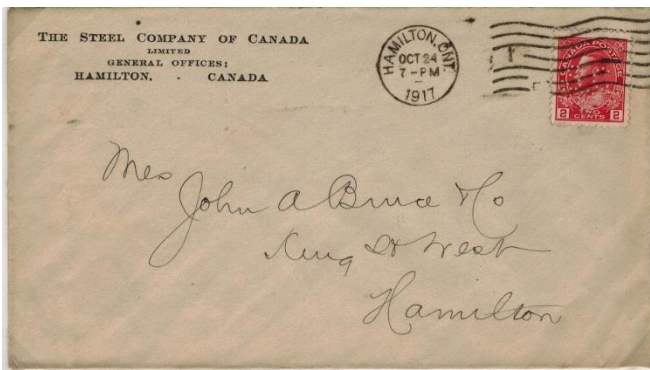 THE STEEL COMPANY OF CANADA
LIMITED
GENERAL OFFICES;
HAMILTON, - CANADA
HAMILTON, ONT.
OCT 24
7-PM
1917
CANADA POSTAGE
2 TWO CENTS 2
Mes
John A Bruce & Co
King St West
Hamilton